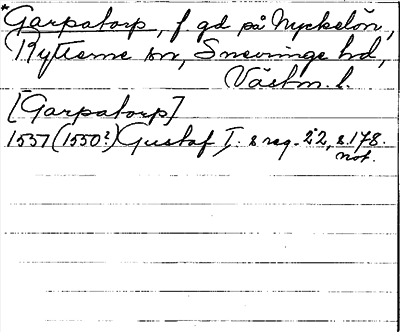 *Garpatorp, f. gd på Nyckelön,
Rytterne sn, Snevringe hd,
Västm. l.
[Garpatorp]
1537 (1550?) Gustaf I. s reg. 22, s. 178.
not.